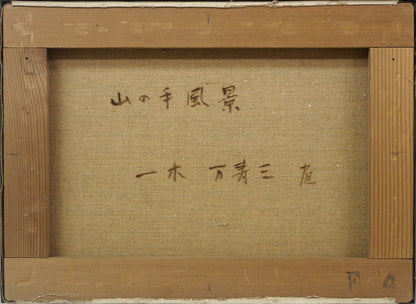 山の手風景
一木 万寿三 画
F 4